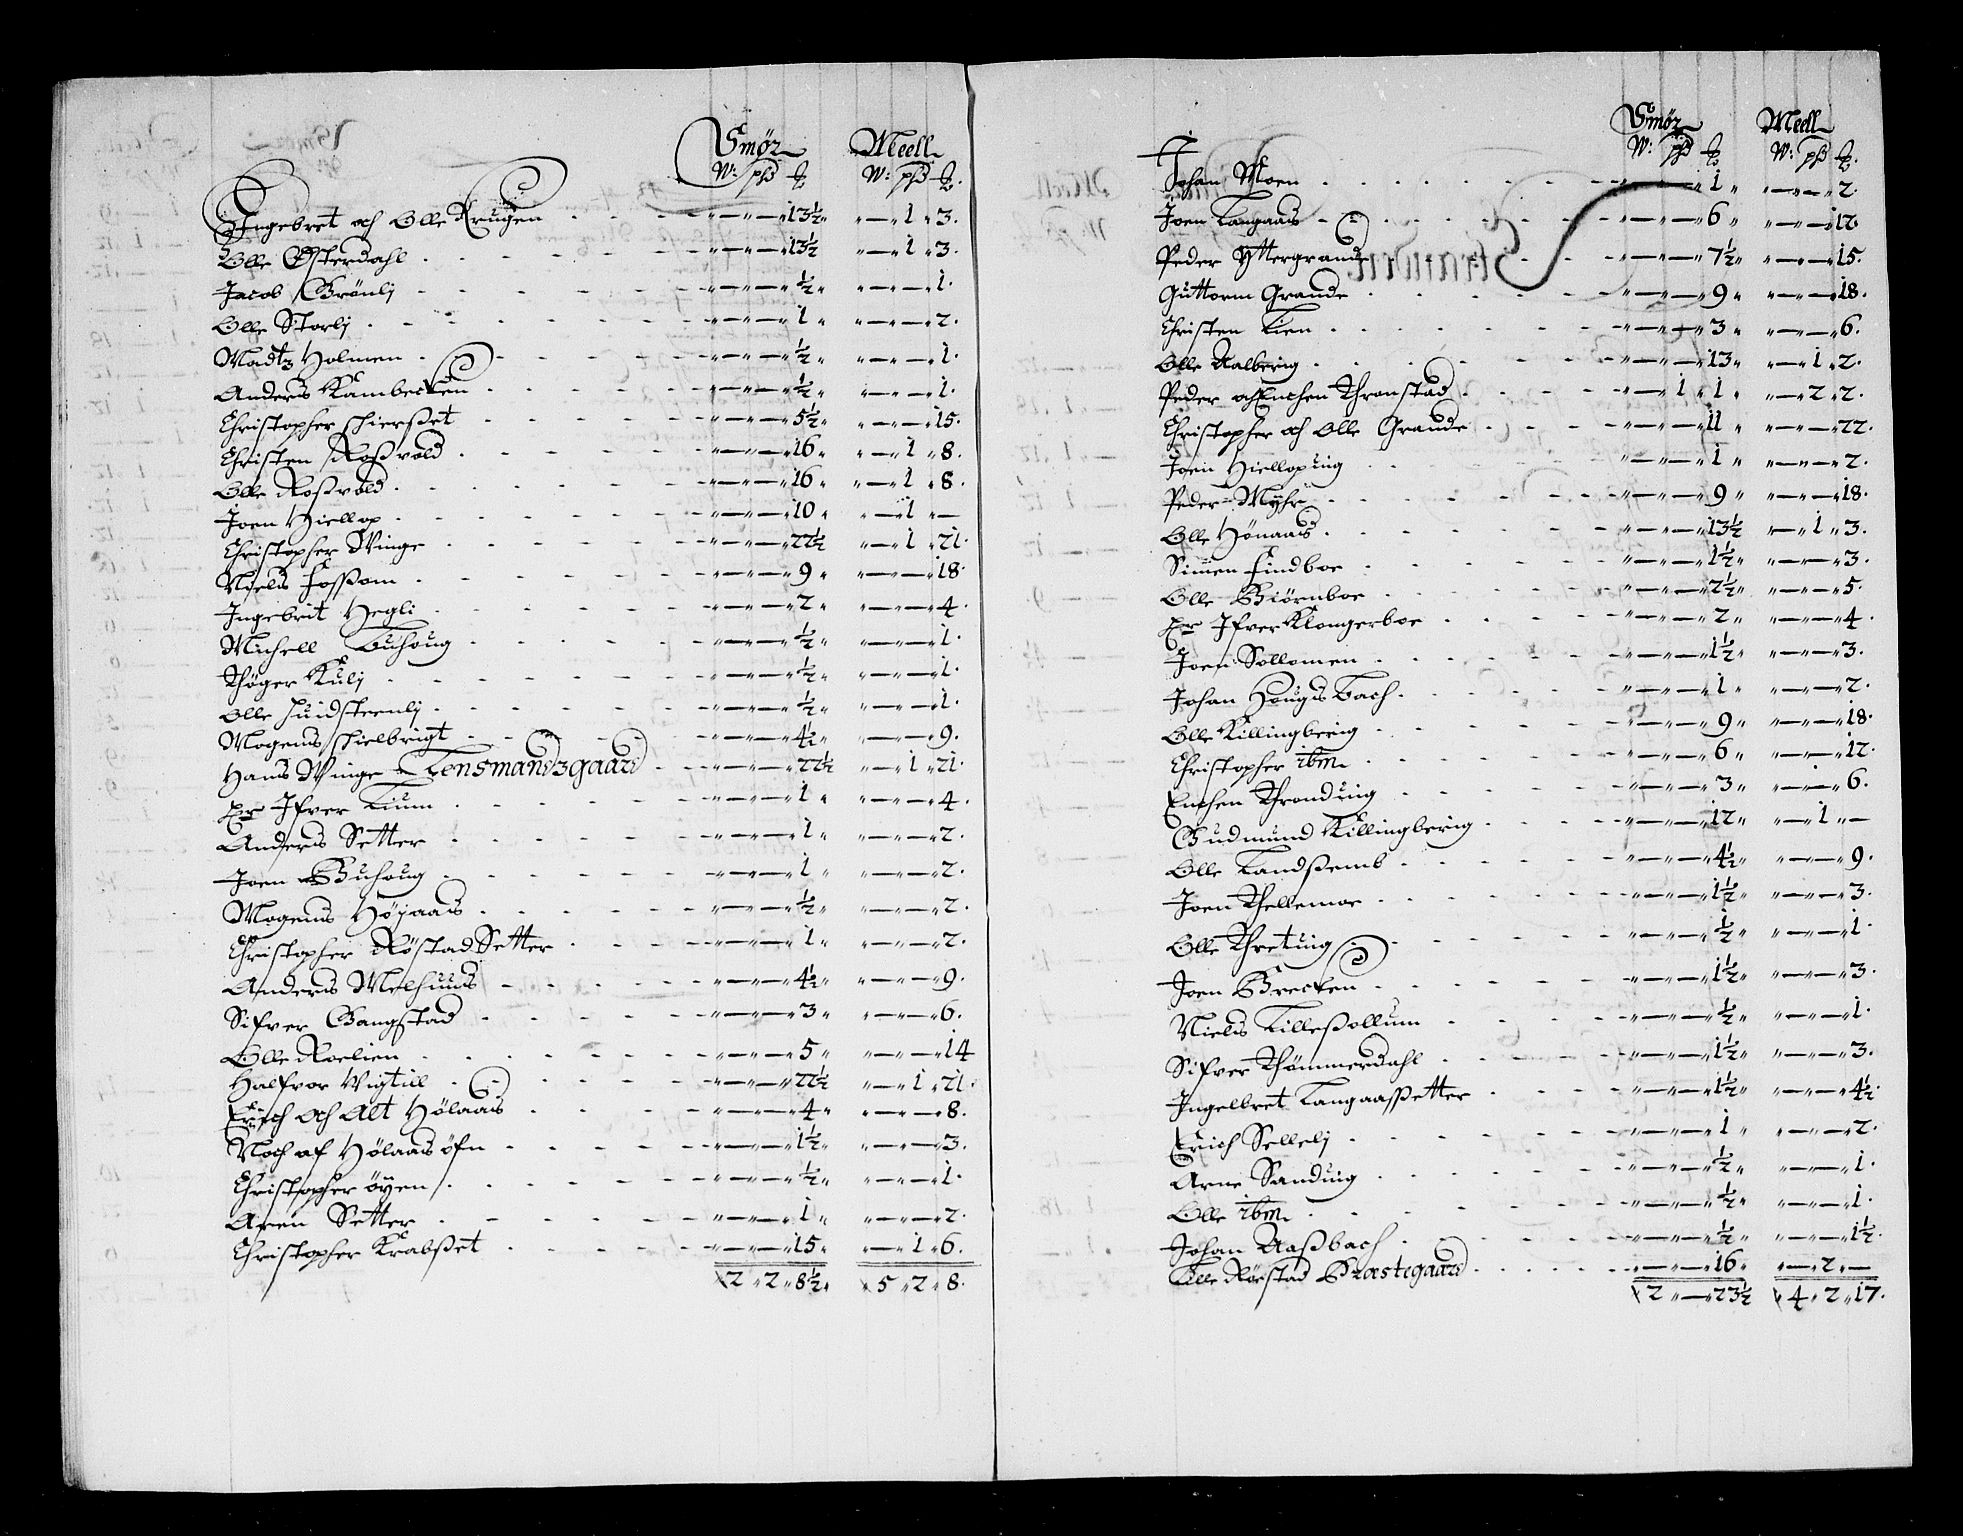 Smör Meell
W: pß ℔ W: pß ℔.
Ingebret och Olle Krugen - - - „—„—„13½„ „—„1„3.
Olle Østerdahl - - - „—„—„13½ „—„1„3.
Jacob Grönlj - - - „—„—„½„ „—„—„1.
Olle Storlj - - - „—„—„1„ „—„—„2.
Madtz Holmen - - - „—„—„½„ „—„—„1.
Anders Kambecken - - - „—„—„½„ „—„—„1.
Christopher schierßet - - - „—„—„5½„ „—„—„15.
Christen Roßvold - - - „—„—„16„ „—„1„8.
Olle Roßvold - - - „—„—„16„ „—„1„8.
Joen Hiellop - - - „—„—„10„ „—„1„—
Christopher Winge - - - „—„—„22½ „—„1„21.
Niels Fossom - - - „—„—„9„ „—„—„18.
Ingebrit Hegli - - - „—„—„2„ „—„—„4.
Michell Buhoug - - - „—„—„½„ „—„—„1.
Thöger Kulj - - - „—„—„½„ „—„—„1.
Olle huidsteenlj - - - „—„—„½„ „—„—„1.
Mogens schielbrigt - - - „—„—„4½„ „—„—„9.
Hans Winge Lensmandzgaard - - „—„—„22½ „—„1„21.
Er Ifver Lium - - - „—„—„1„ „—„—„4.
Anders Setter - - - „—„—„1„ „—„—„2.
Joen Buhoug - - - „—„—„1„ „—„—„2.
Mogens Höjaas - - - „—„—„½„ „—„—„2.
Christopher Röstad Setter - - - „—„—„1„ „—„—„2.
Anders Melhuus - - - „—„—„4½„ „—„—„9.
Sifver Gangstad - - - „—„—„3„ „—„—„6.
Olle Roelien - - - „—„—„5„ „—„—„14
Halfvor Wigtill - - - „—„—„22½ „—„1„21.
Erich och Alt Hölaas - - - „—„—„4„ „—„—„8.
Noch af Hölaas öfn - - - „—„—„1½„ „—„—„3.
Christopher öyen - - - „—„—„½„ „—„—„1.
Aren Setter - - - „—„—„1„ „—„—„2.
Christopher Krabßet - - - „—„—„15„ „—„1„6.
2„2„8½„ 5„2„8.
Smör Meell
W: pß ℔ W: pß ℔.
Johan Moen - - - „—„—„1„ „—„—„2.
Joen Langaas - - - „—„—„6„ „—„—„12
Peder Yttergrande - - - „—„—„7½„ „—„—„15.
Guttorm Grande - - - „—„—„9„ „—„—„18.
Christen Lien - - - „—„—„3„ „—„—„6.
Olle Aalberig - - - „—„—„13„ „—„1„2.
Peder och Enchen Thronstad - - - „—„1„1„ „—„2„2.
Christopher och Olle Grande - - - „—„—„11„ „—„—„22.
Joen Hiellopuig - - - „—„—„1„ „—„—„2.
Peder Myhr - - - „—„—„9„ „—„—„18.
Olle Hönaas - - - „—„—„13½ „—„1„3.
Simen Findboe - - - „—„—„1½„ „—„—„3.
Olle Biörnboe - - - „—„—„2½„ „—„—„5.
Er Ifver Klongerboe - - - „—„—„2„ „—„—„4.
Joen Sollomen - - - „—„—„1½„ „—„—„3.
Johan Hougs Bach - - - „—„—„1„ „—„—„2.
Olle Killingberig - - - „—„—„9„ „—„—„18.
Christopher ibm - - - „—„—„6„ „—„—„12.
Enchen Thronduig - - - „—„—„3„ „—„—„6.
Gudmund Killingberig - - - „—„—„12„ „—„1„—
Olle Landßemb - - - „—„—„4½„ „—„—„9.
Joen Thellemoe - - - „—„—„1½„ „—„—„3.
Olle Thretuig - - - „—„—„½„ „—„—„1.
Joen Brecken - - - „—„—„1½„ „—„—„3.
Niels Lilleßollum - - - „—„—„½„ „—„—„1.
Sifver Thömmerdahl - - - „—„—„1½„ „—„—„3.
Ingelbret Langaasßetter - - - „—„—„1½„ „—„—„4½.
Erich Sellelj - - - „—„—„1„ „—„—„2.
Arne Sanduig - - - „—„—„½„ „—„—„1.
Olle ibm - - - „—„—„½„ „—„—„1.
Johan Aaßbach - - - „—„—„½„ „—„—„1½.
Olle Rörstad Præstegaard - - - „—„—„16„ „—„2„—
2„—„23½ 4„2„17.